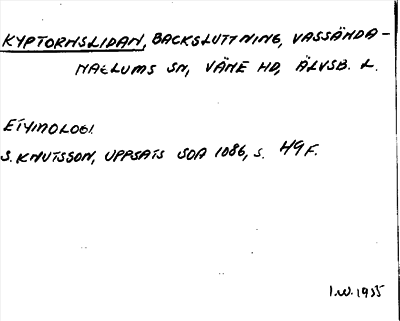 KYPTORNSLIDAN, BACKSLUTTNING, VASSÄNDA-
NAGLUMS SN, VÄNE HD, ÄLVSB. L.
ETYMOLOGI.
S. KNUTSSON, UPPSATS SOA 1086, S. 49 F.
I.W. 1955